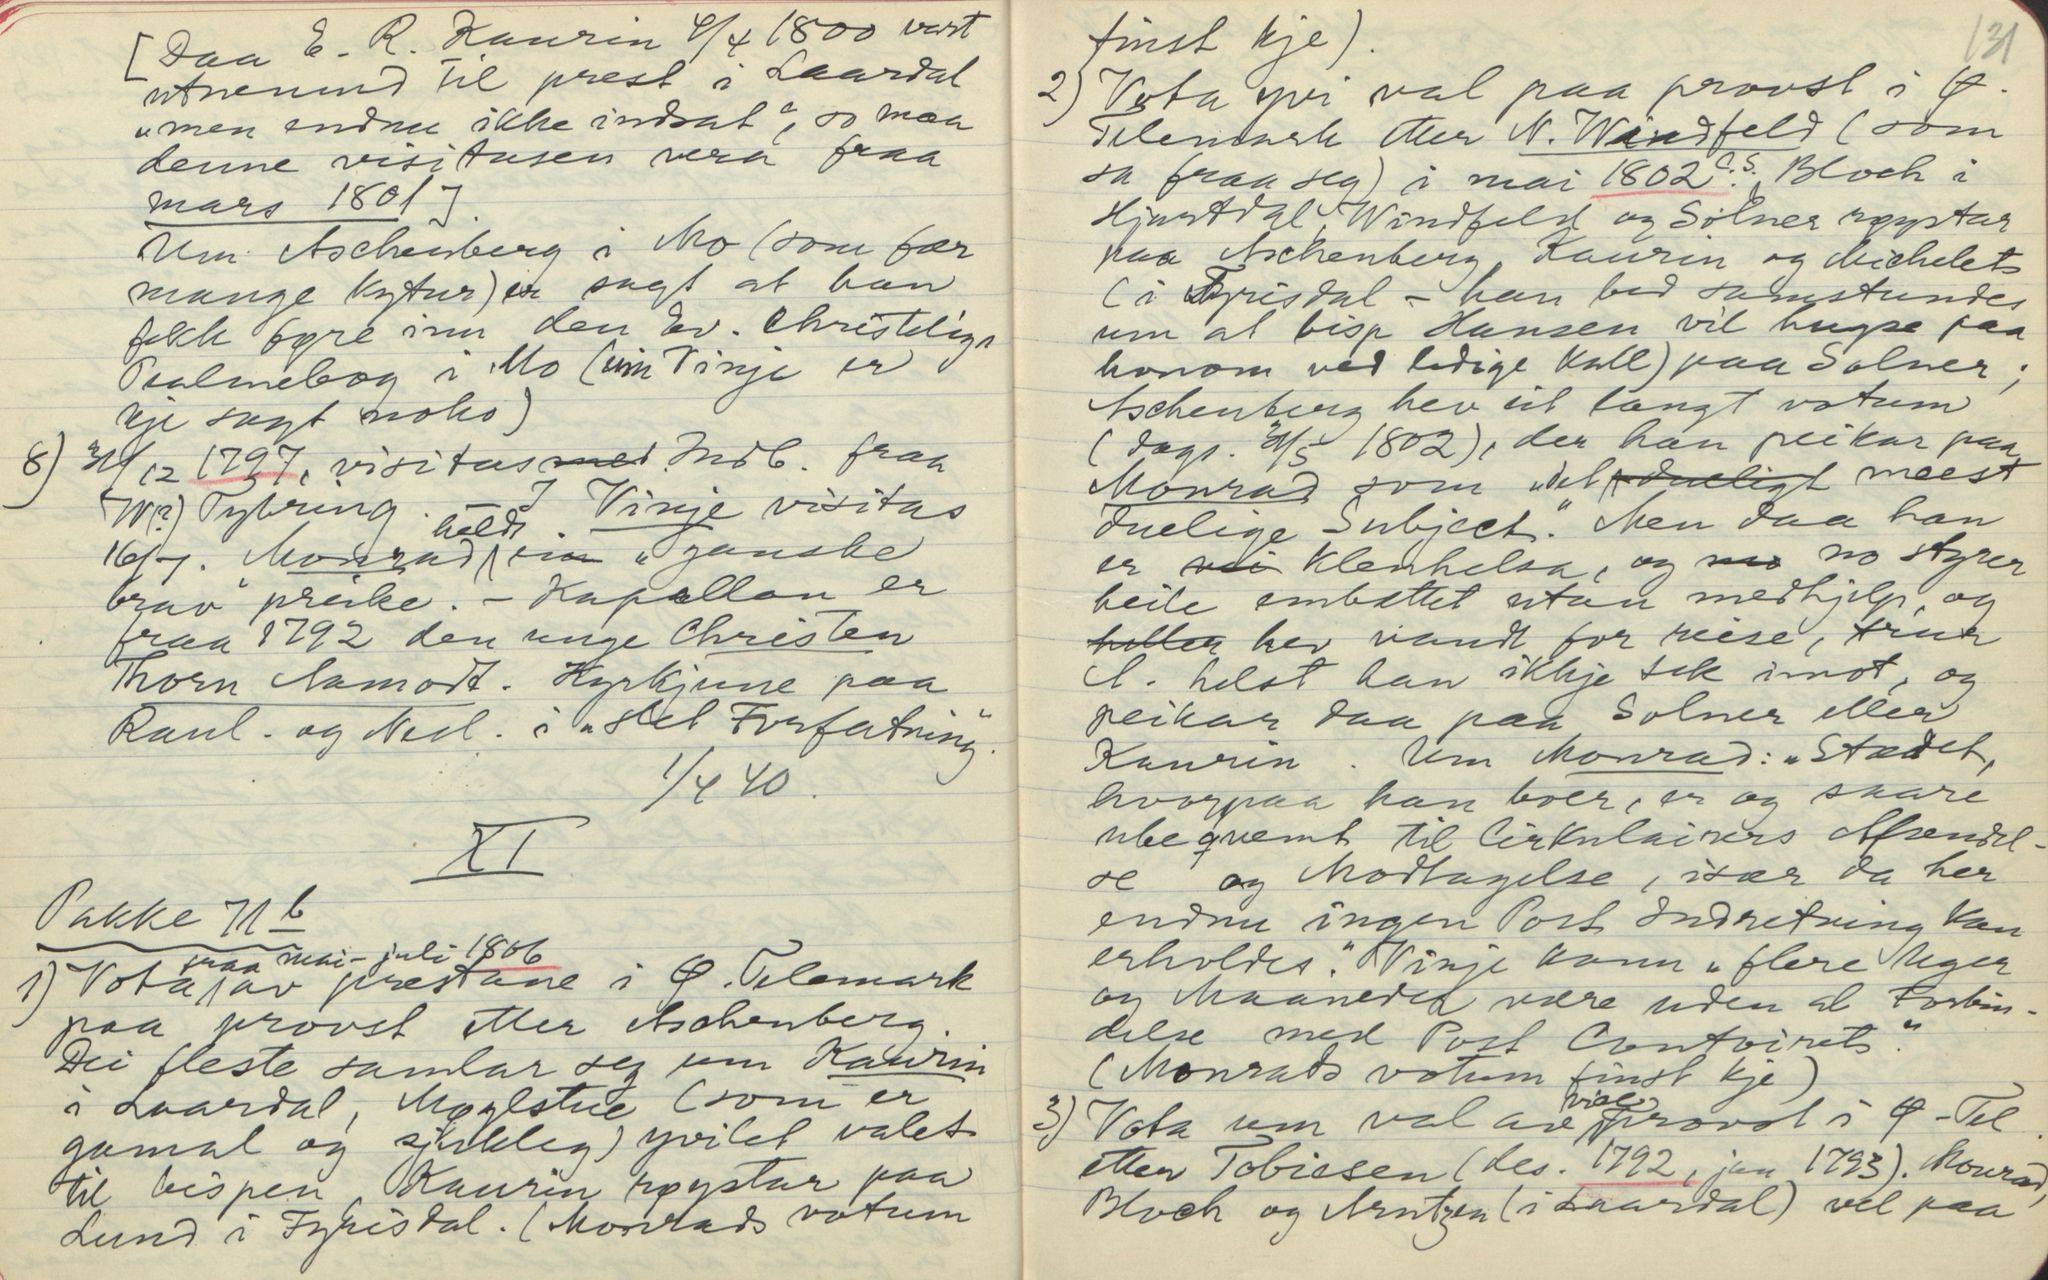 [Daa E. R. Kaurin 4/4 1800 vart
utnemnd til prest i Laardal
„men endnu ikke indsat", so maa
denne visitasen vera fraa
mars 1801].
Um Aschenberg i Mo (som fær
mange kytur) er sagt at han
fekk føre inn den Ev. Christelige
Psalmebog i Mo (um Vinje er
kje sagt noko)
8) 31/12 1797, visitas med. Indb. fraa
W(?) Tybring. – I Vinje visitas
16/7. Monrad heldt ein „ganske
brav" preike. – Kapellan er
fraa 1792 den unge Christen
Thorn Aamodt. Kyrkjune paa
Raul. og Nesl. i „slet Forfatning".
1/4 40.
XI
Pakke 71 b
fraa mai–juli 1806
1) Vota av prestane i Ø. Telemark
paa provst etter Aschenberg.
Dei fleste samlar seg um Kaurin
i Laardal, Møglstue (som er
gamal og sjukleg) yvilet valet
til bispen, Kaurin røystar paa
Lund i Fyrisdal. (Monrads votum
131
finst kje).
2) Vota yvi val paa provst i Ø.
Telemark etter N. Windfeld (som
sa fraa seg) i mai 1802. C.S. Bloch i
Hjartdal, Windfeld og Solner røystar
paa Aschenberg, Kaurin og Michelets
(i Fyrisdal – han bed samstundes
um at bisp Hansen vil hugse paa
honom ved ledige kall) paa Solner;
Aschenberg hev eit langt votum
(dags. 31/5 1802), der han peikar paa
Monrad som „det dueligt meest
duelige Subject." Men daa han
er vei klenhelsa, og no no styrer
heile embættet utan medhjelp, og
heller hev vandt for reise, trur
A. helst han ikkje tek imot, og
peikar daa paa Solner eller
Kaurin. Um Monrad: „Stædet,
hvorpaa han boer, er og saare
ubeqvemt til Cirkulairers Afsendel-
se og Modtagelse, især da her
endnu ingen Post Indretning kan
erholdes." Vinje kann „flere Uger
og Maaneder være uden al Forbin-
delse med Post Contoirets".
(Monrads votum finst kje)
3) Vota um val av vice provst i Ø-Tel.
etter Tobiesen (des. 1792, jan 1793). Monrad,
Bloch og Arntzen (i Laardal) vel paa